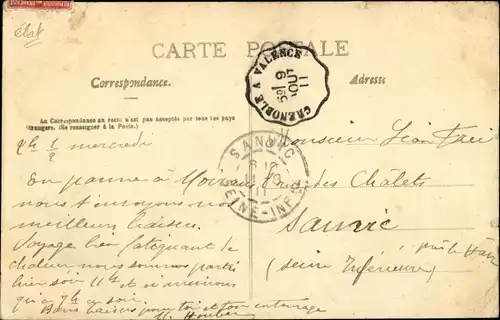 état
CARTE POSTALE
Correspondance.
Adresse
Au Correspondance au recto n'est pas acceptée par tous les pays
étrangers. (Se renseigner à la Poste.)
GRENOBLE A VALENCE
5º/ 9
AOUT
11
SANVIC
SEINE-INFRE
4h 1/2 mercredi
En panne à
nous t'envoyons nos
meilleurs baisers.
Voyage hier fatiguant de
chaleur nous sommes partis
hier soir 11h et n'arriverons
qu'à 7h ce soir.
Bons baisers pour toi et ton entourage
Monsieur Léon
Rue des Chalets
Sanvic
près le Havre
(Seine Inférieure)